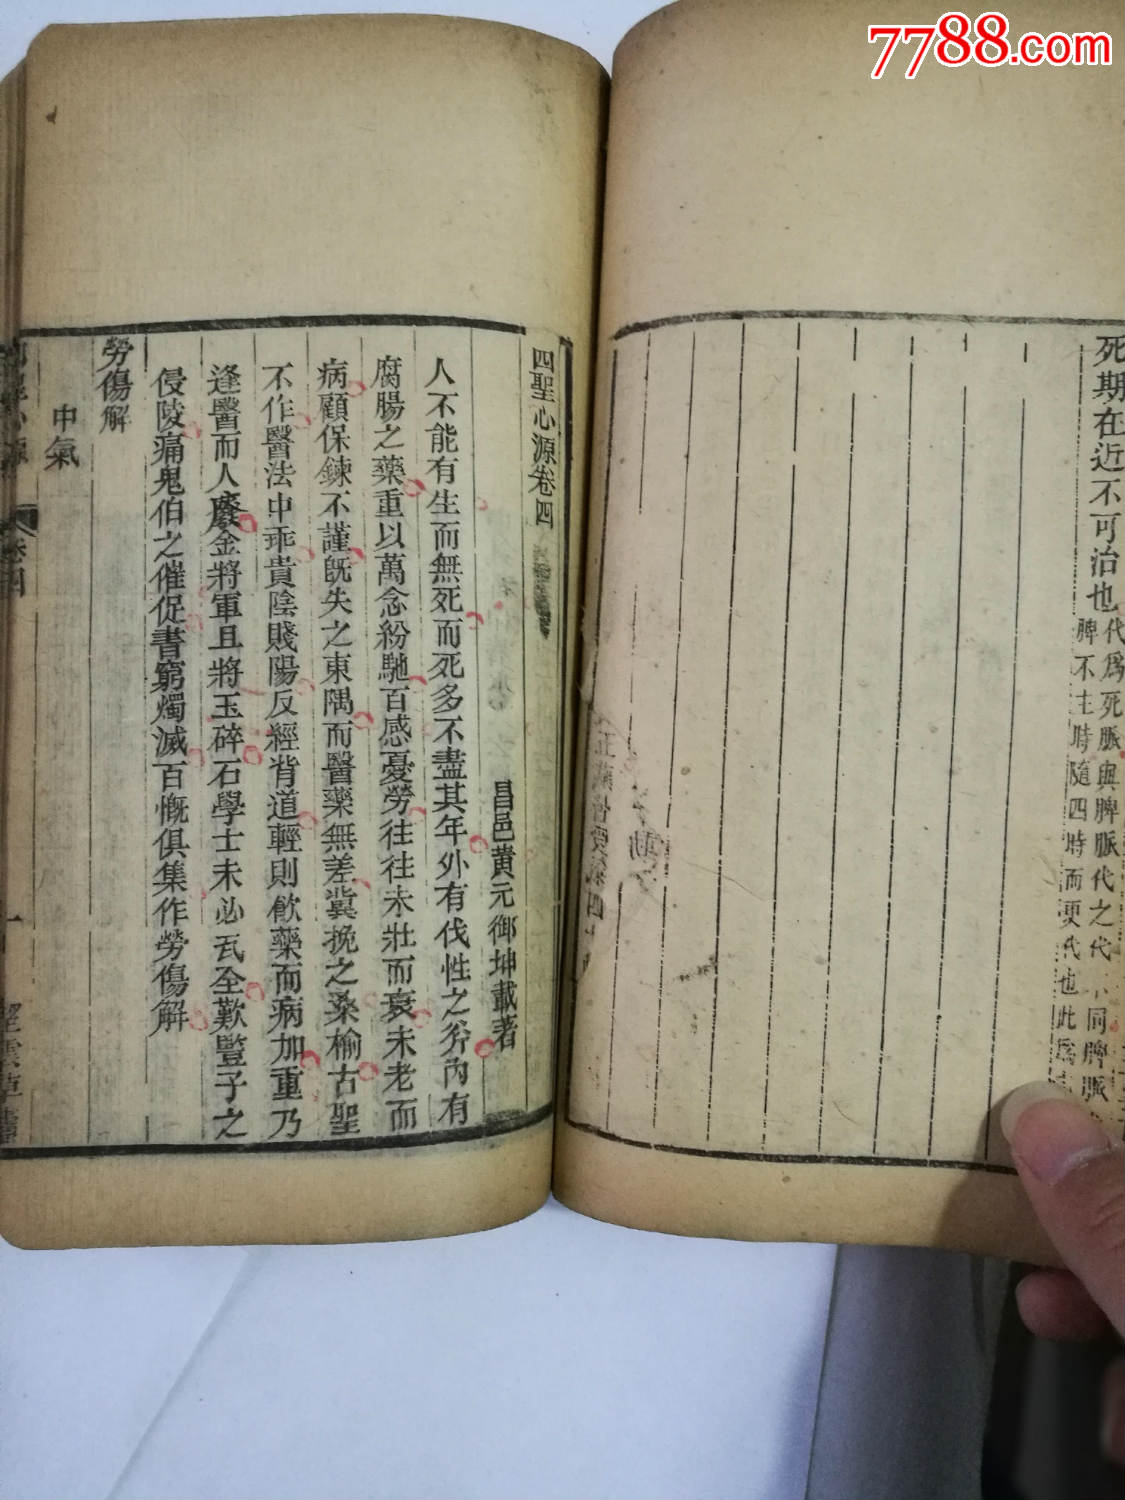 7788.com
死期在近不可治也
代爲死脈與脾脈代之代不同脾脈
脾不主時隨四時而更代也此爲
四聖心源卷四
昌邑黄元御坤載著
人不能有生而無死而死多不盡其年外有伐性之斧內有
腐腸之藥重以萬念紛馳百感憂勞往往未壯而衰未老而
病顧保鍊不謹旣失之東隅而醫藥無差冀挽之桑榆古聖
不作醫法中乖貴陰賤陽反經背道輕則飲藥而病加重乃
逢醫而人廢金將軍且將玉碎石學士未必瓦全歎豎子之
侵陵痛鬼伯之催促書窮燭滅百慨俱集作勞傷解
勞傷解
中氣
聖心源
卷四
一